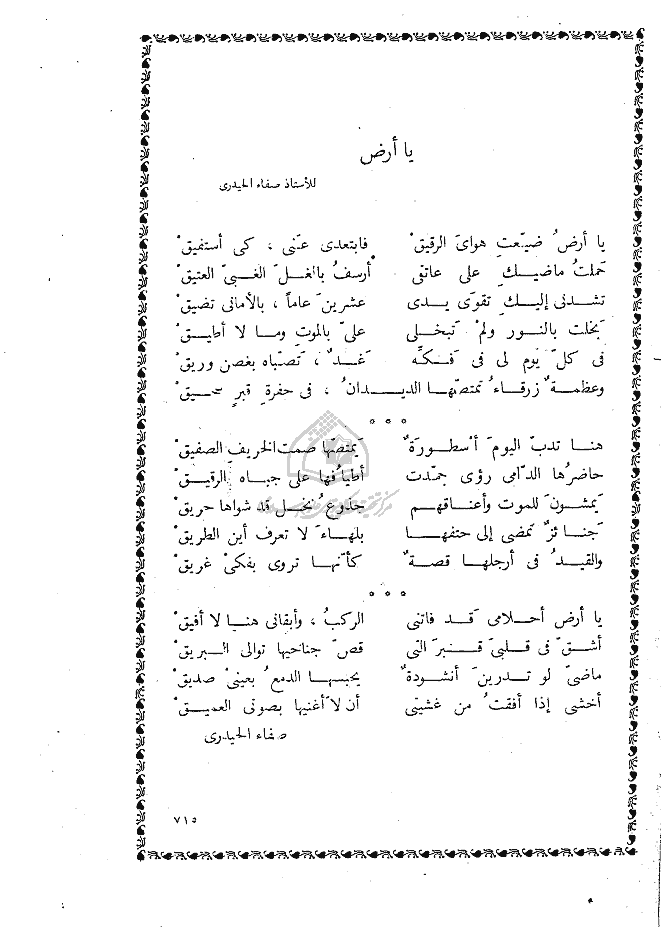 يا أرض
للأستاذ صفاء الحيدرى
يا أرضُ ضيّعتِ هوايَ الرقيقْ فابتعدى عنّى ، كى أستفيقْ
حملتُ ماضيكِ على عاتقى أرسفُ بالغلّ الغبىّ العتيقْ
تشدنى إليكِ تقوَى يدى عشرينَ عاماً ، بالأمانى تضيقْ
بخلت بالنور ولمْ تبخلى علىّ بالموتِ وما لا أطيقْ
فى كلّ يوم لى فى فكهِ غدٌ ، تصباه بغصن وريقْ
وعظمةٌ زرقاءُ تمتصّها الديدانُ ، فى حفرةِ قبرٍ سحيقْ
° ° °
هنا تدبّ اليومَ أسطورةٌ يمتصّها صمت الخريف الصفيقْ
حاضرُها الدّامى رؤى جمّدت أطيافُها على جباه الرقيقْ
يمشونَ للموت وأعناقهم جذوعُ نخل قد شواها حريقْ
جنائزٌ تمضى إلى حتفها بلهاءَ لا تعرف أين الطريقْ
والقيدُ فى أرجلها قصةٌ كأنّها تروى بفكىْ غريقْ
° ° °
يا أرض أحلامى قد فاتنى الركبُ ، وأبقانى هنا لا أفيقْ
أشقّ فى قلبىَ قنبر التى قصّ جناحيها توالى البريقْ
ماضىّ لو تدرين أنشودةٌ يحبسها الدمعُ بعينىْ صديقْ
أخشى إذا أفقتُ من غشيتى أن لا أغنيها بصوتى العميقْ
صفاء الحيدرى
٧١٥